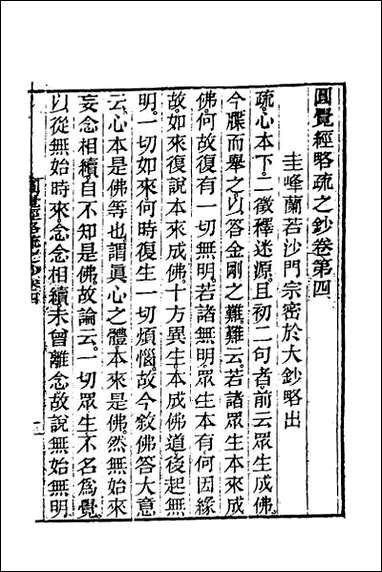 圓覺經略疏之鈔卷第四
圭峰蘭若沙門宗密於大鈔略出
疏心本下二徵釋迷源。且初二句者。前云眾生成佛。
今牒而舉之。以答金剛之難。難云。若諸眾生本來成
佛。何故復有一切無明。若諸無明。眾生本有。何因緣
故。如來復說本來成佛。十方異生。本成佛道。後起無
明。一切如來。何時復生一切煩惱。故今敘佛答大意
云。心本是佛等也。謂真心之體。本來是佛。然無始來
妄念相續。自不知是佛。故論云。一切眾生不名為覺。
以從無始時來。念念相續。未曾離念。故說無始無明